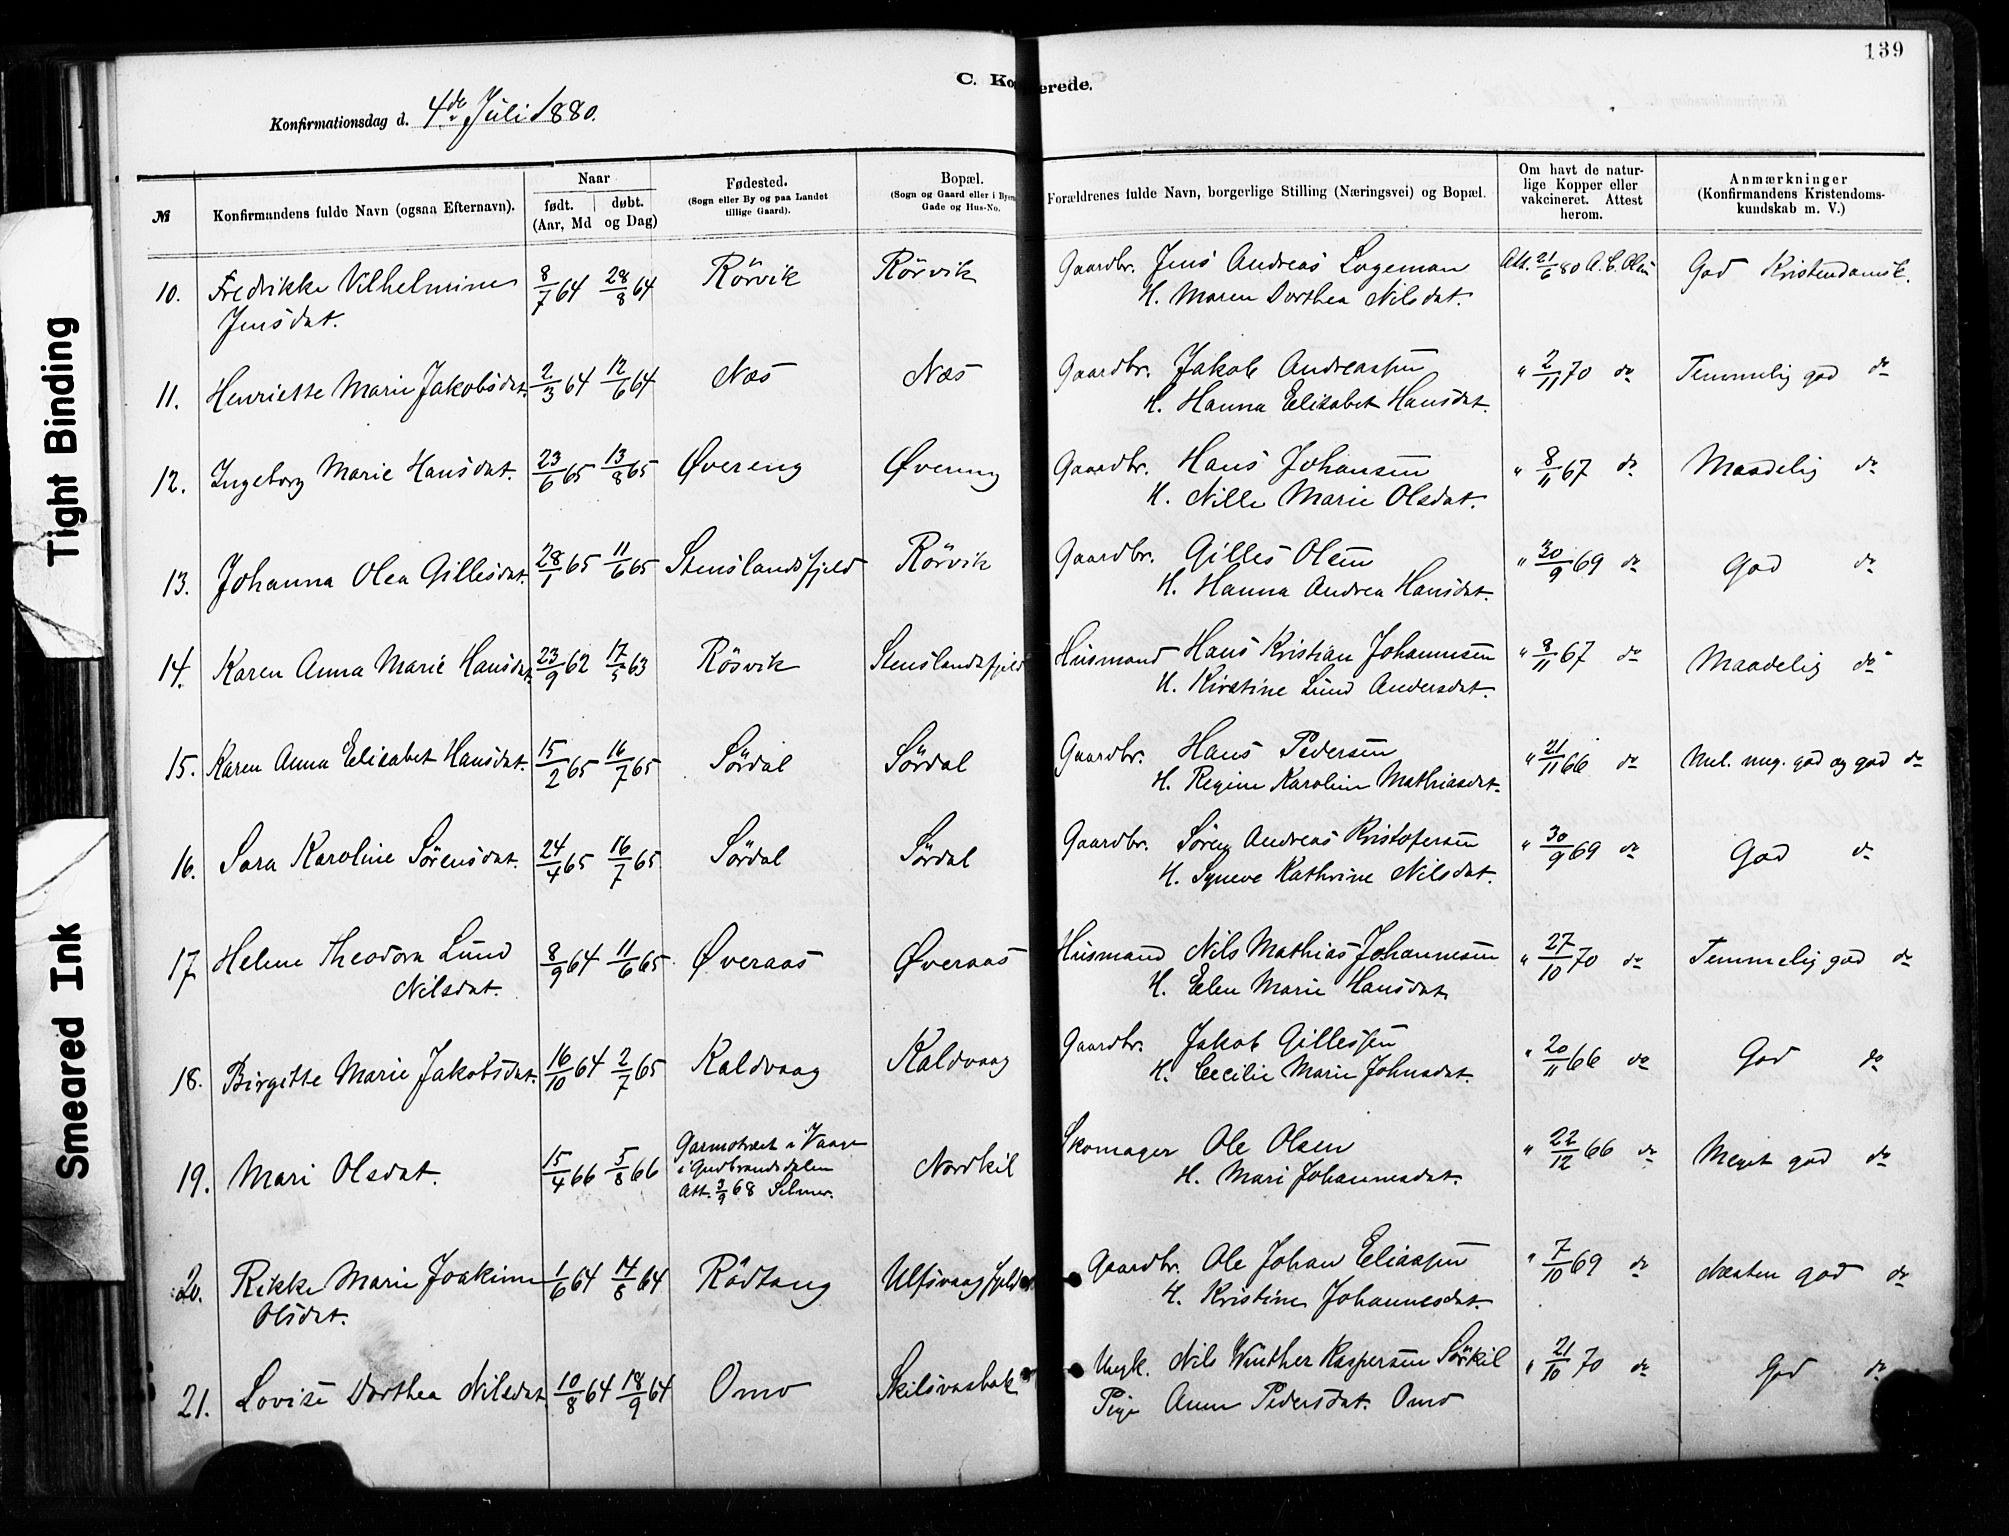 139
C. Ko erede.
Konfirmationsdag d. 4de Juli 1880.
№
Konfirmandens fulde Navn (ogsaa Efternavn).
Naar
født. døbt.
(Aar, Md og Dag)
Fødested.
(Sogn eller By og paa Landet
tillige Gaard).
Bopæl.
(Sogn og Gaard eller i Byern
Gade og Hus-No.
Forældrenes fulde Navn, borgerlige Stilling (Næringsvei) og Bopæl.
Om havt de natur-
lige Kopper eller
vakcineret. Attest
herom.
Anmærkninger
(Konfirmandens Kristendoms-
kundskab m. V.)
10. Fredrikke Vilhelmine 8/7 64 28/8 64 Rörvik Rörvik Gaardbr. Jens Andreas Lageman Att. 21/6 80 A. C. God Kristendomsk.
Jensdat. H. Maren Dorthea Nilsdat.
11. Henriette Marie Jakobsdat. 2/3 64 12/6 64 Næs Næs Gaardbr. Jakob Andreassen " 2/11 70 do Temmelig god do
H. Hanna Elisabet Hansdat.
12. Ingeborg Marie Hansdat. 23/6 65 13/8 65 Øvereng Øvereng Gaardbr. Hans Johansen " 8/11 67 do Maadelig do
H. Nille Marie Olsdat.
13. Johanna Olea Gillesdat. 28/1 65 11/6 65 Stenslandsfjeld Rörvik Gaardbr. Gilles Olsen " 30/9 69 do God do
H. Hanna Andrea Hansdat.
14. Karen Anna Marie Hansdat. 23/9 62 17/5 63 Rösvik Stenslandsfjeld Husmand Hans Kristian Johannesen " 8/11 67 do Maadelig do
H. Kirstine Lund Andersdat.
15. Karen Anna Elisabet Hansdat. 15/2 65 16/7 65 Sördal Sördal Gaardbr. Hans Pedersen " 21/11 66 do Mel. meg. god og god do
H. Regine Karoline Mathiasdat.
16. Sara Karoline Sörensdat. 24/4 65 16/7 65 Sördal Sördal Gaardbr. Sören Andreas Kristofersen " 30/9 69 do God do
H. Syneve Kathrine Nilsdat.
17. Helene Theodora Lund 8/9 64 11/6 65 Øveraas Øveraas Husmand Nils Mathias Johannesen " 27/10 70 do Temmelig god do
Nilsdat. H. Elen Marie Hansdat.
18. Birgitte Marie Jakobsdat. 16/10 64 2/7 65 Kaldvaag Kaldvaag Gaardbr. Jakob Gillessen " 20/11 66 do God do
H. Cecilie Marie Johnsdat.
19. Mari Olsdat. 15/4 66 5/8 66 Garmotræet i Vaage Nordkil Skomager Ole Olsen " 22/12 66 do Meget god do
i Gudbrandsdalen H. Mari Johannesdat.
Att. 3/9 68
20. Rikke Marie Joakime 1/6 64 14/8 64 Rödtang Ulfsvaagfjeld Gaardbr. Ole Johan Eliassen " 7/10 69 do Næsten god do
Olsdat. H. Kristine Johannesdat.
21. Lovise Dorthea Nilsdat. 10/8 64 18/9 64 Omo Skilsvasbak Ungk. Nils Winther Kaspersen Sörkil " 21/10 70 do God do
Pige Anne Pedersdat. Omo
Tight Binding
Smeared Ink